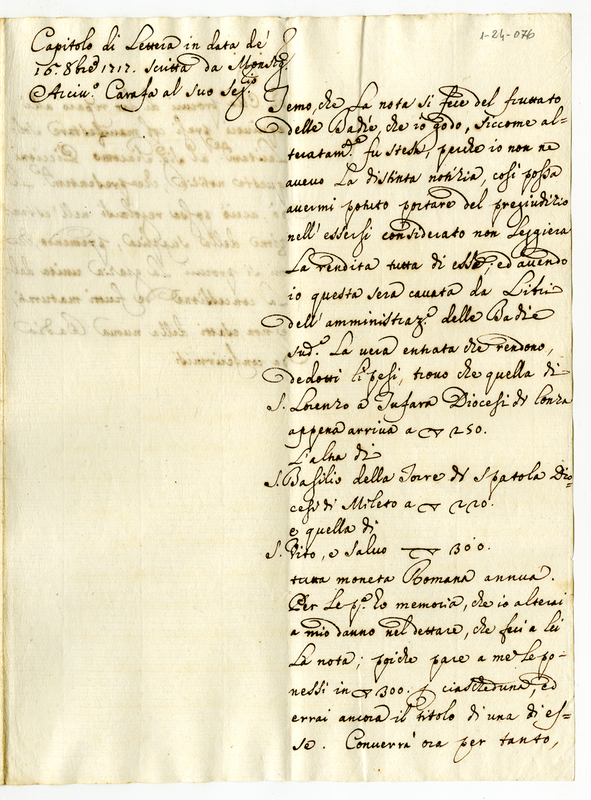 1-24-076
Capitolo di Lettera in data de'
16. 8bre 1717. scritta da Monsig.r
Arciv.o Carafa al suo Seg.rio
Temo, che La nota si fece del fruttato
delle Badie, che io godo, siccome al-
teratam.te fu stesa, perche io non ne
avevo La distinta notizia, così possa
avermi potuto portare del pregiudizio
nell'essersi considerato non Leggiera
La rendita tutta di esse; ed avendo
io questa sera cavata da Libri
dell'amministraz.e delle Badie
sud.e La vera entrata che rendono,
dedotti li pesi, trovo che quella di
S. Lorenzo a Tufara Diocesi di Conza
appena arriva a 250.
L'altra di
S. Basilio della Torre di Spatola Dio=
cesi di Mileto a 220.
e quella di
S. Vito, e Salvo 300.
tutta moneta Romana annua.
Per Le p.e ho memoria, che io alterai
a mio danno nel dettare, che feci a lei
La nota; poiche pare a me Le po-
nessi in 300. p ciascheduna, ed
errai ancora il titolo di una di es=
se. Converrà ora per tanto,